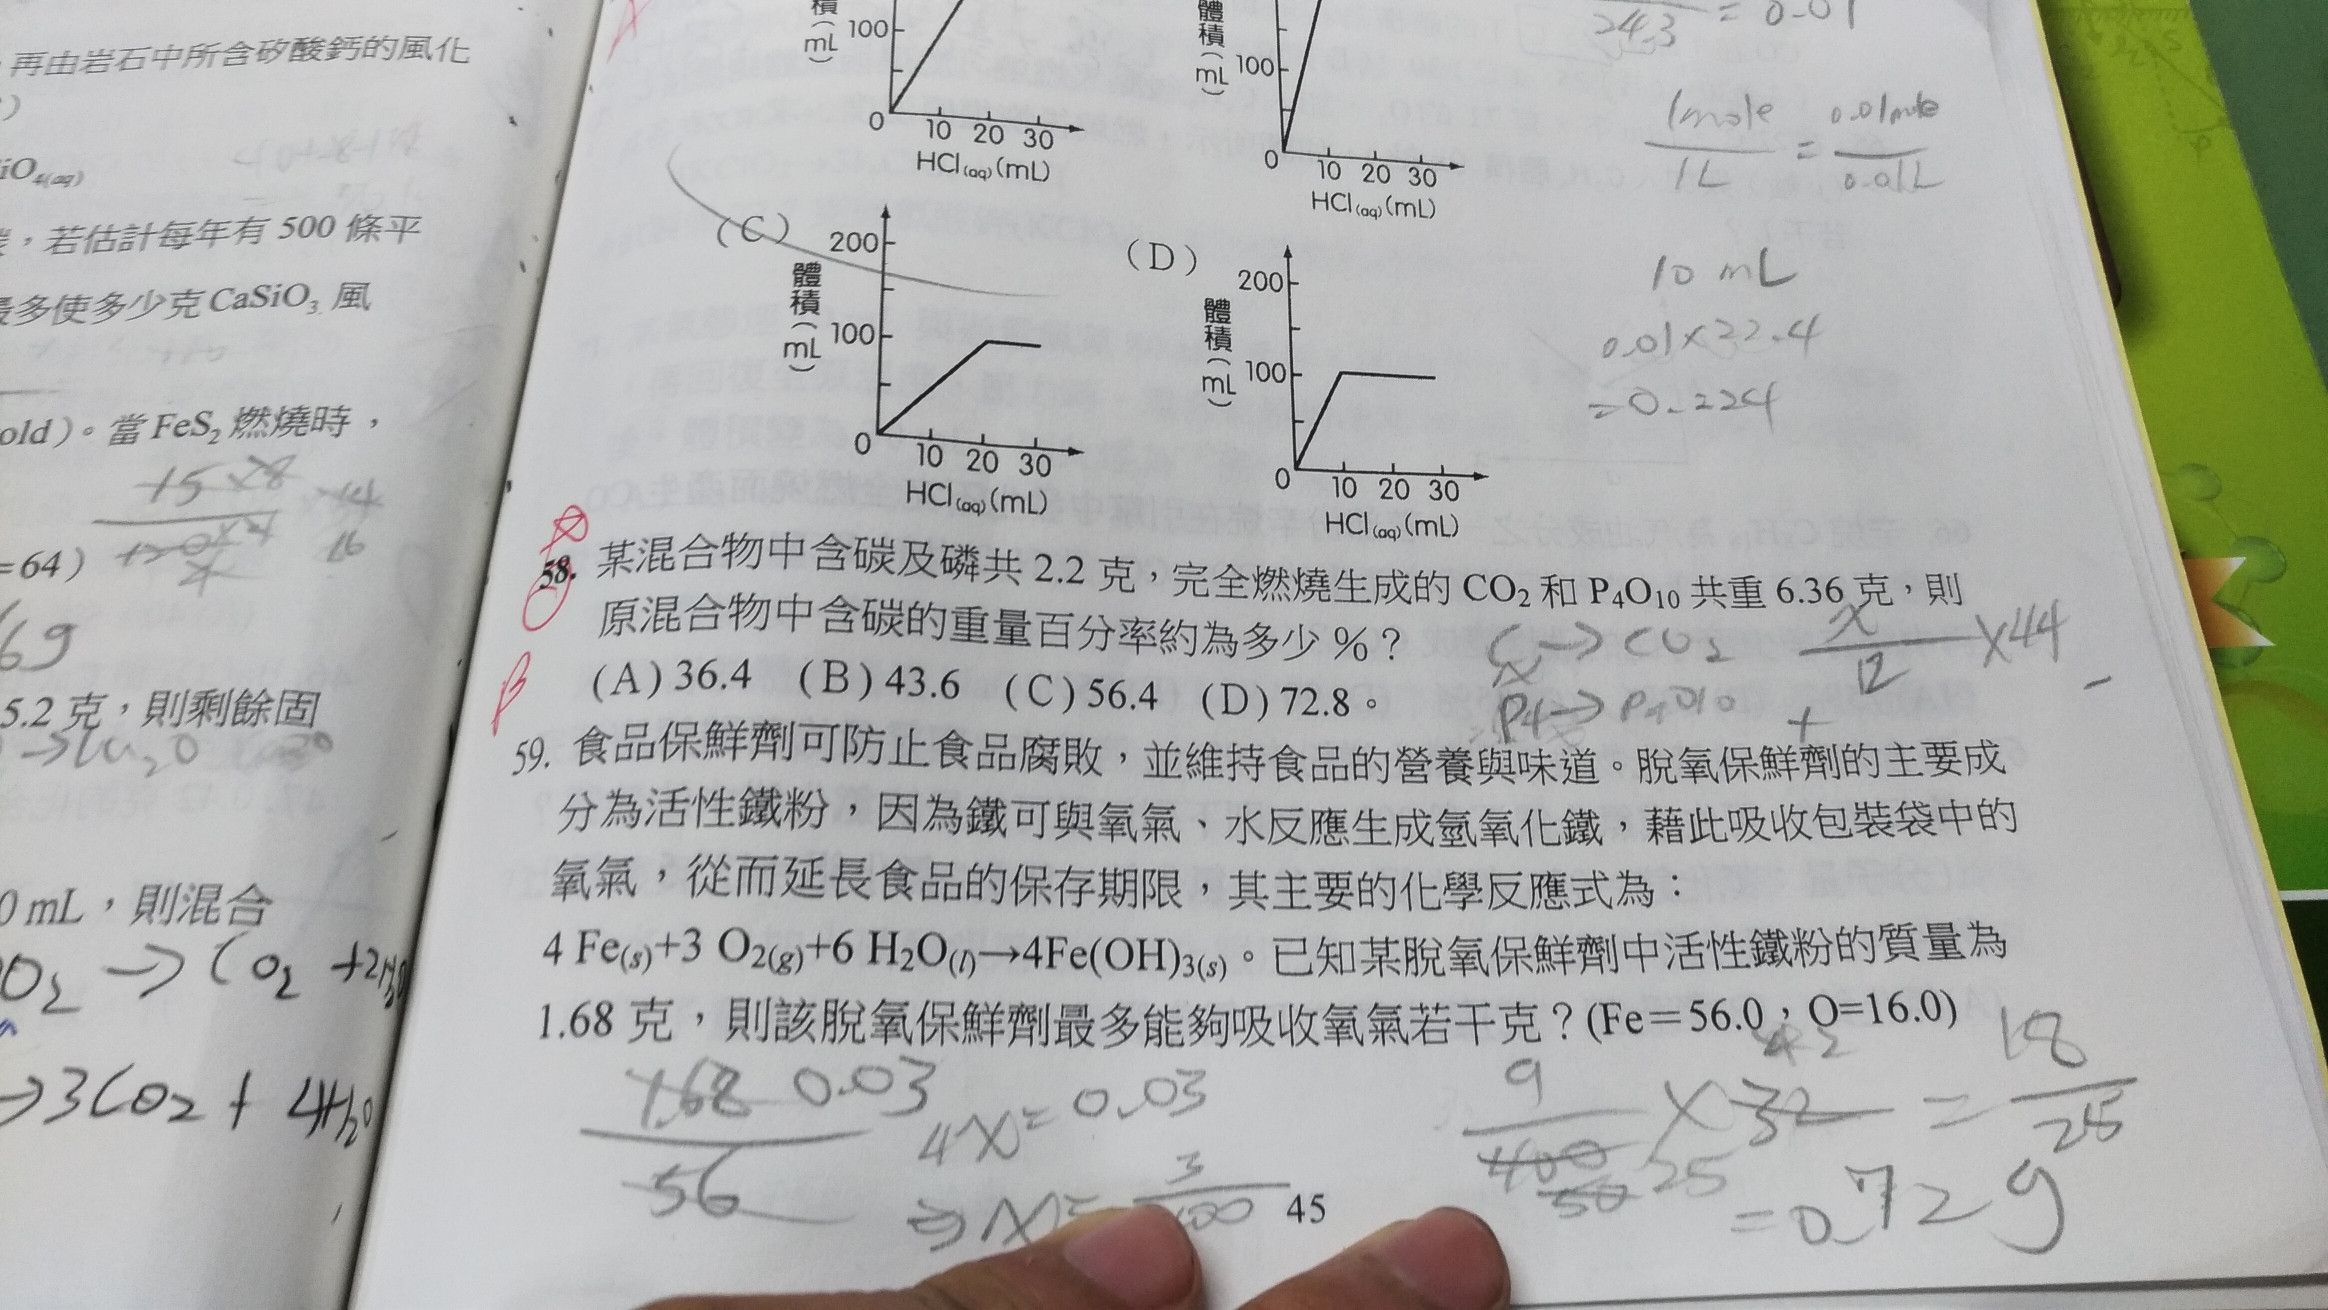 再由岩石中所含矽酸鈣的風化
)
iO4(aq)
,若估計每年有 500 條平
最多使多少克 CaSiO3 風
old)。當 FeS2 燃燒時,
15×8
16
=64)
69
5.2 克,則剩餘固
0 mL,則混合
O2 → CO2 + 2H2O
→ 3CO2 + 4H2O
積(mL)
100
0
10 20 30
HCl(aq)(mL)
體積(mL)
100
0
10 20 30
HCl(aq)(mL)
24.3
= 0.01
1mole
1L
=
0.01mole
0.01L
10 mL
0.01×22.4
=0.224
(C)
200
體積(mL)
100
0
10 20 30
HCl(aq)(mL)
(D)
200
體積(mL)
100
0
10 20 30
HCl(aq)(mL)
58. 某混合物中含碳及磷共 2.2 克,完全燃燒生成的 CO2 和 P4O10 共重 6.36 克,則
原混合物中含碳的重量百分率約為多少 %?
(A) 36.4 (B) 43.6 (C) 56.4 (D) 72.8。
B
C → CO2
x
P4 → P4O10
x
12
×44
+
59. 食品保鮮劑可防止食品腐敗,並維持食品的營養與味道。脫氧保鮮劑的主要成
分為活性鐵粉,因為鐵可與氧氣、水反應生成氫氧化鐵,藉此吸收包裝袋中的
氧氣,從而延長食品的保存期限,其主要的化學反應式為:
4 Fe(s)+3 O2(g)+6 H2O(l)→4Fe(OH)3(s)。已知某脫氧保鮮劑中活性鐵粉的質量為
1.68 克,則該脫氧保鮮劑最多能夠吸收氧氣若干克?(Fe=56.0,O=16.0)
1.68 0.03
56
4x = 0.03
⇒ x =
3
9
400
50 25
×32
=
18
25
=0.72g
45